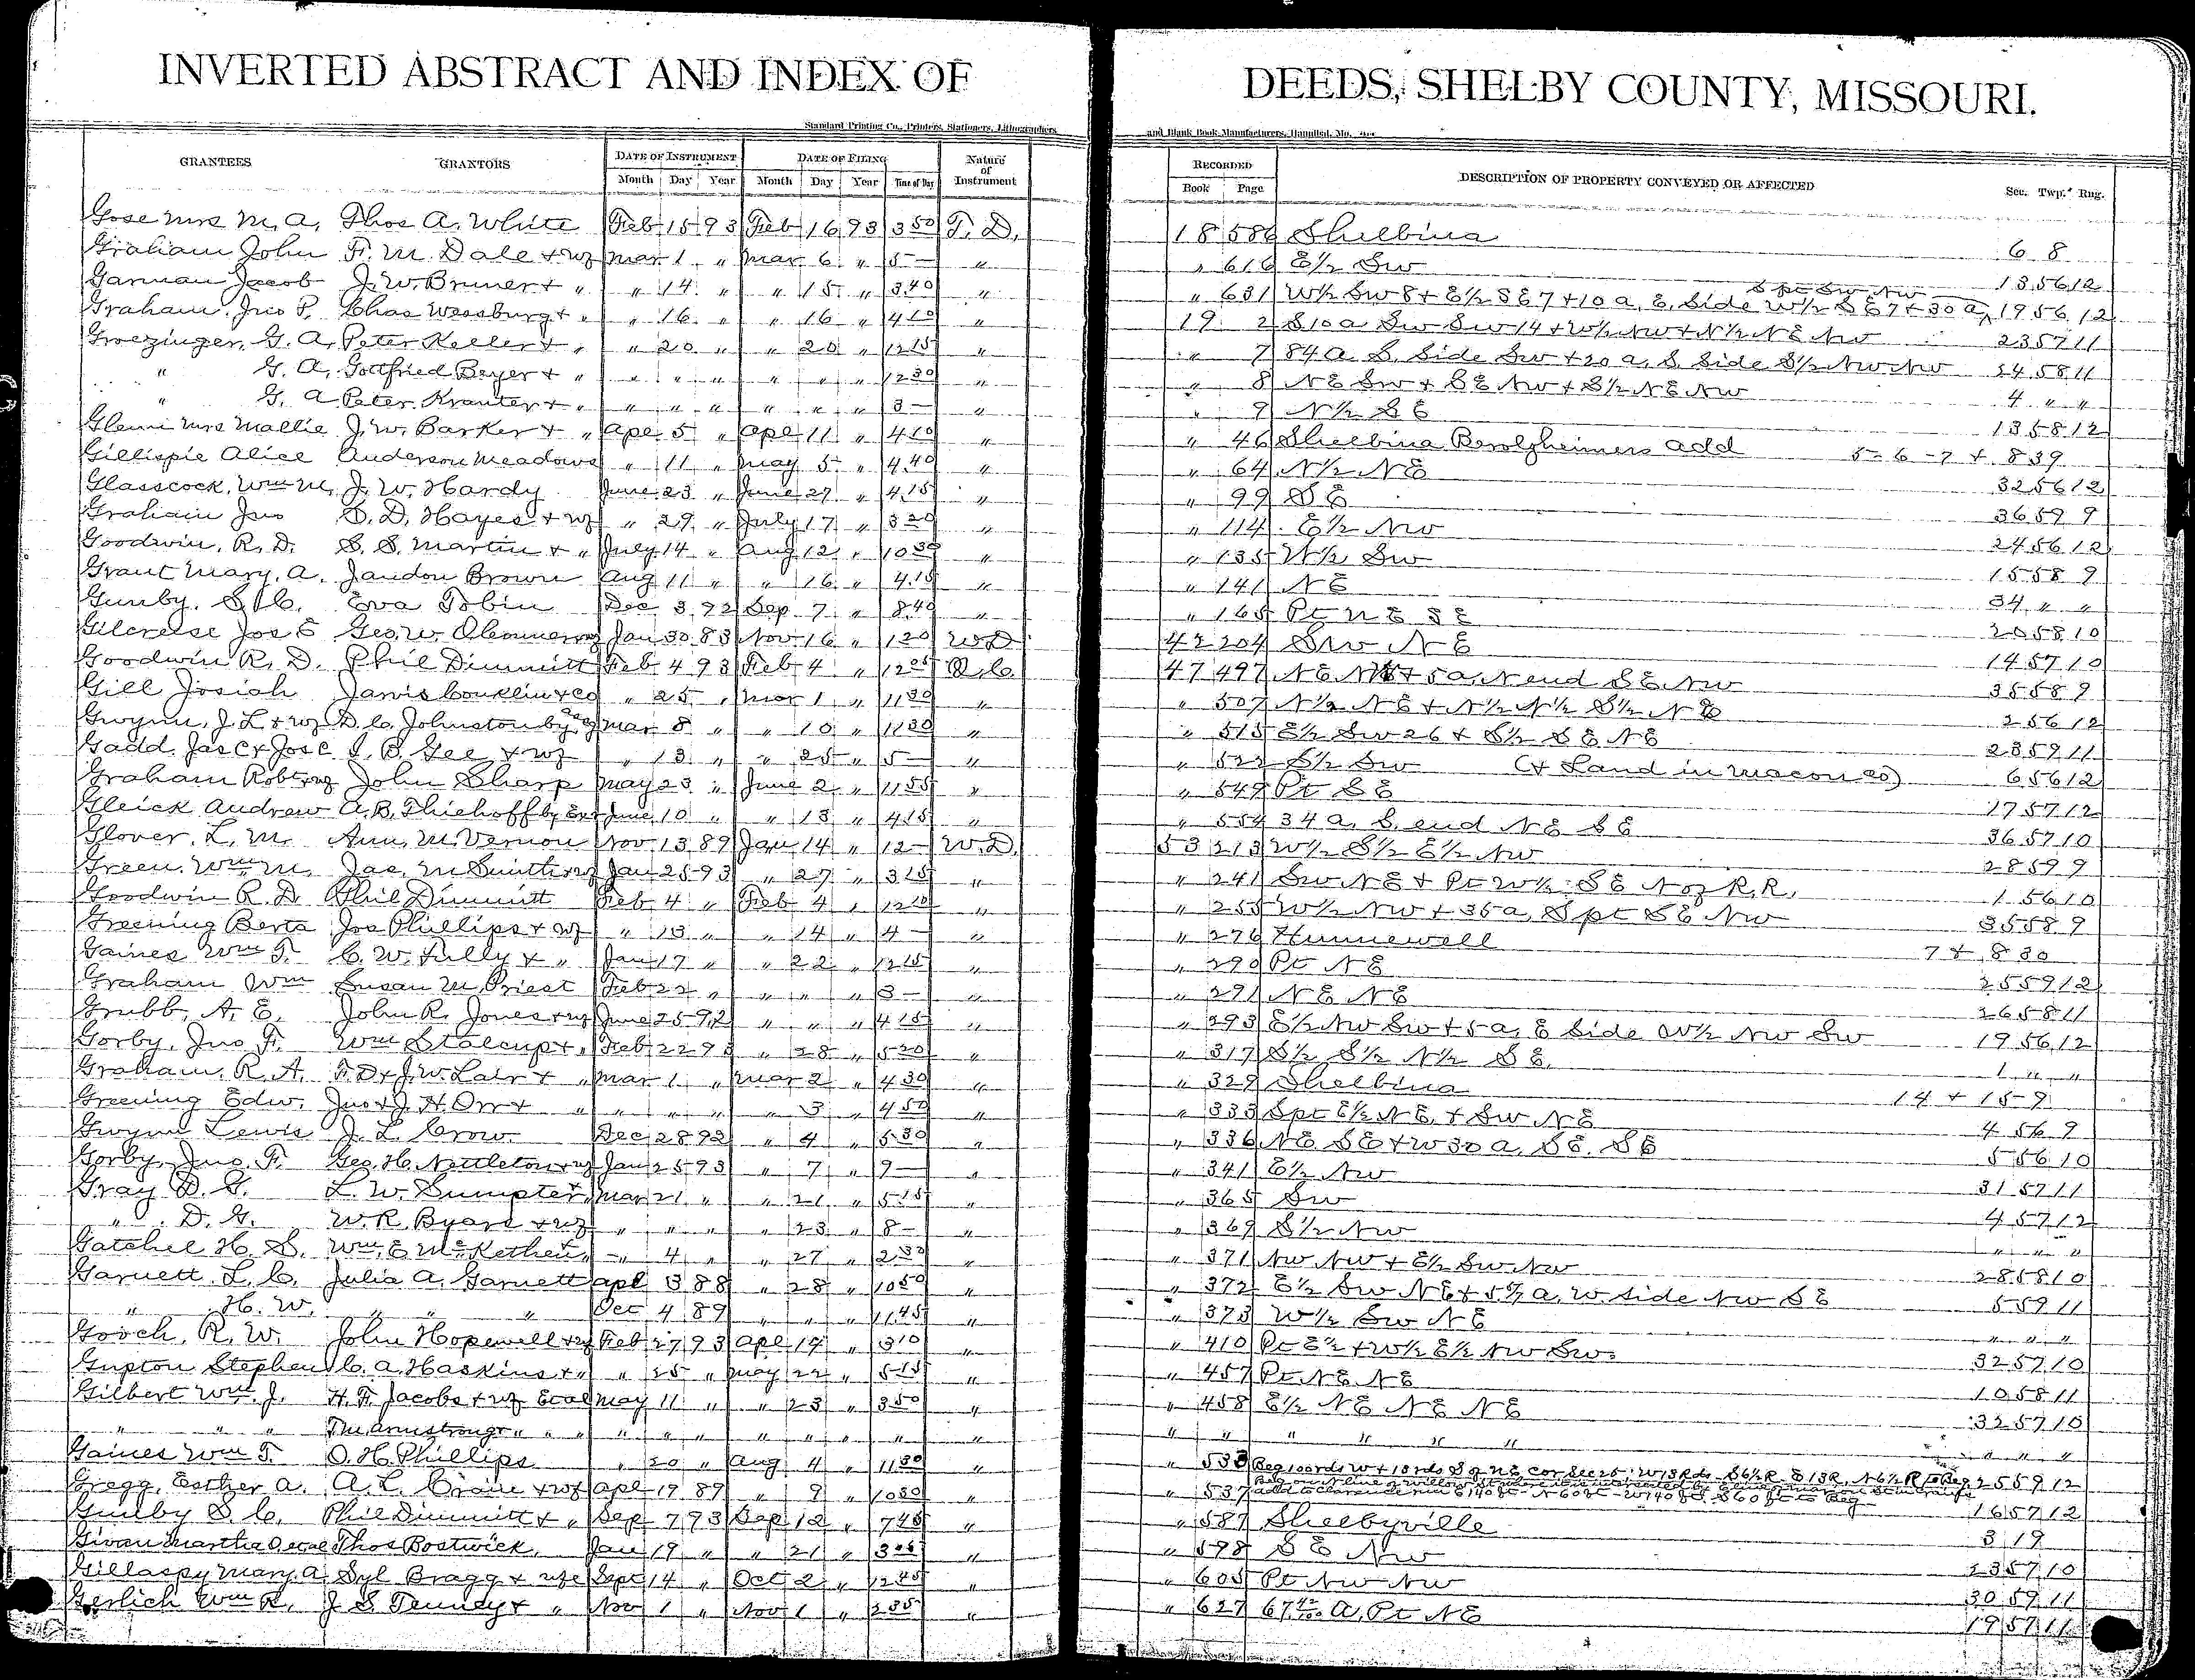 INVERTED ABSTRACT AND INDEX OF DEEDS, SHELBY COUNTY, MISSOURI.
Standard Printing Co., Printers, Stationers, Lithographers and Blank Book Manufacturers, Hannibal, Mo.
GRANTEES GRANTORS DATE OF INSTRUMENT DATE OF FILING Nature of Instrument RECORDED DESCRIPTION OF PROPERTY CONVEYED OR AFFECTED Sec. Twp. Rng.
Month Day Year Month Day Year Time of Day Book Page
Gose Mrs M. A. Thos A. White Feb 15 93 Feb 16 93 3 50 T. D. 18 586 Shelbina 6 8
Graham John F. M. Dale + wf Mar 1 " Mar 6 " 5 — " " 616 E½ SW 13 56 12
Garman Jacob J. W. Bruner + " " 14 " " 15 " 3 40 " " 631 W½ SW 8 + E½ SE 7 + 10 a. E. Side W½ SE 7 + 30 a, S pt SW NW 19 56 12
Graham, Jno P. Chas Weesburg + " " 16 " " 16 " 4 10 " 19 2 S 10 a SW SW 14 + W½ NW + N½ NE NW 23 57 11
Groezinger, G. A. Peter Keller + " " 20 " " 20 " 12 15 " " 7 84 a S. Side SW + 20 a. S Side S½ NW NW 34 58 11
" G. A. Gottfried Beyer + " " " " " " " 12 30 " " 8 NE SW + SE NW + S½ NE NW 4 " "
" G. A. Peter Krauter + " " " " " " " 3 — " " 9 N½ SE 13 58 12
Glenn Mrs Mallie J. W. Barker + " Apl 5 " Apl 11 " 4 10 " " 46 Shelbina Berolzheimers add 5-6-7 + 8 39
Gillispie Alice Anderson Meadows " 11 " May 5 " 4 40 " " 64 N½ NE 32 56 12
Glasscock, Wm M. J. W. Hardy June 23 " June 27 " 4 15 " " 99 SE 36 59 9
Graham Jno D. D. Hayes + wf " 29 " July 17 " 3 20 " " 114 E½ NW 24 56 12
Goodwin, R. D. S. S. Martin + " July 14 " Aug 12 " 10 30 " " 135 W½ SW 15 58 9
Grant Mary. A. Jandon Brown Aug 11 " " 16 " 4 15 " " 141 NE 34 " "
Gunby. S. C. Eva Tobin Dec 3 92 Sep 7 " 8 40 " " 165 Pt NE SE 20 58 10
Gilcrease Jos E Geo. W. Jan 30 83 Nov 16 " 1 20 W D 42 204 SW NE 14 57 10
Goodwin R. D. Phil Dimmitt Feb 4 93 Feb 4 " 12 05 Q. C. 47 497 NE NW + 5 a, N end SE NW 35 58 9
Gill Josiah Jarvis Conklin + Co " 25 " Mar 1 " 11 30 " " 507 N½ NE + N½ N½ S½ NE 2 56 12
Gwynn, J. L + wf D. C. Johnston by Mar 8 " " 10 " 11 30 " " 515 E½ SW 26 + S½ SE NE 23 59 11
Gadd. Jas C + Jos C I. B. Gee + wf " 13 " " 25 " 5 — " " 522 S½ SW (+ Land in Macon Co) 6 56 12
Graham Robt + wf John Sharp May 23 " June 2 " 11 55 " " 549 Pt SE 17 57 12
Gleick Andrew A. B. Thiehoff by Exr June 10 " " 13 " 4 15 " " 554 34 a. S. end NE SE 36 57 10
Glover. L. M. Ann. M. Vernon Nov 13 89 Jan 14 " 12 — W. D. 53 213 W½ S½ E½ NW 28 59 9
Green. Wm M. Jas. M Smith + wf Jan 25 93 " 27 " 3 15 " " 241 SW NE + Pt W½ SE N of R. R. 1 56 10
Goodwin R. D Phil Dimmitt Feb 4 " Feb 4 " 12 10 " " 255 W½ NW + 35 a, S pt SE NW 35 58 9
Greening Berta Jos Phillips + wf " 13 " " 14 " 4 — " " 276 Hunnewell 7 + 8 30
Gaines Wm T. C. W. Tully + " Jan 17 " " 22 " 12 15 " " 290 Pt NE 25 59 12
Graham Wm Susan M. Priest Feb 22 " " " " 3 — " " 291 NE NE 26 58 11
Grubb, A. E. John R. Jones + wf June 25 92 " " " 4 15 " " 293 E½ NW SW + 5 a, E Side W½ NW SW 19 56 12
Gorby, Jno F. Wm Stalcup + " Feb 22 93 " 28 " 5 20 " " 317 S½ S½ N½ SE. 1 " "
Graham, R. A. F. D + J. W. Lair + " Mar 1 " Mar 2 " 4 30 " " 329 Shelbina 14 + 15 9
Greening Edw. Jno + J. H. Orr + " " " " " 3 " 4 50 " " 333 S pt E½ NE, + SW NE 4 56 9
Gwynn Lewis J. L. Crow Dec 28 92 " 4 " 5 30 " " 336 NE SE + W 30 a. SE. SE 5 56 10
Gorby, Jno. F. Geo. H. Nettleton + wf Jan 25 93 " 7 " 9 — " " 341 E½ NW 31 57 11
Gray D. G. L. W. Sumpter + " Mar 21 " " 21 " 5 15 " " 365 SW 4 57 12
" D. G. W. R. Byars + wf " " " " 23 " 8 — " " 369 S½ NW " " "
Gatchel H. S. Wm. E McKethen + " " 4 " " 27 " 2 30 " " 371 NW NW + E½ SW NW 28 58 10
Garnett. L. C. Julia A. Garnett Apl 3 88 " 28 " 10 50 " " 372 E½ SW NE + a. W. side NW SE 5 59 11
" H. W. " " " Oct 4 89 " " " 11 45 " " 373 W½ SW NE " " "
Gooch, R. W. John Hopewell + wf Feb 27 93 Apl 19 " 3 10 " " 410 Pt E½ + W½ E½ NW SW. 32 57 10
Gupton Stephen C. A. Haskins + " " 25 " May 22 " 5 15 " " 457 Pt NE NE 10 58 11
Gilbert Wm. J. H. F. Jacobs + wf Etal May 11 " " 23 " 3 50 " " 458 E½ NE NE NE 32 57 10
" " " Armstrong + " " " " " " " " " " " " " " " " " " " " "
Gaines Wm T. O. H. Phillips " 20 " Aug 4 " 11 30 " " 533 Beg 100 rds W + 13 rds S of NE cor Sec 25; W 13 Rds S 6½ R E 13 R, N 6½ R to Beg. 25 59 12
Gregg, Esther A. A. L. Crain + wf Apl 19 89 " 9 " 10 30 " " 537 Beg on N line of Willow St E 140 ft - N 60 ft - W 140 ft - S 60 ft to Beg 16 57 12
Gunby S. C. Phil Dimmitt + " Sep 7 93 Sep 12 " 7 45 " " 587 Shelbyville 3 19
Givan Martha D etal Thos Bostwick, Jan 19 " " 21 " 3 05 " " 598 SE NW 23 57 10
Gillaspy Mary. A. Syl Bragg + wfe Sept 14 " Oct 2 " 12 45 " " 605 Pt NW NW 30 59 11
Gerlich Wm R. J. S. Tenney + " Nov 1 " Nov 1 " 2 35 " " 627 67 42/100 A. Pt NE 19 57 11